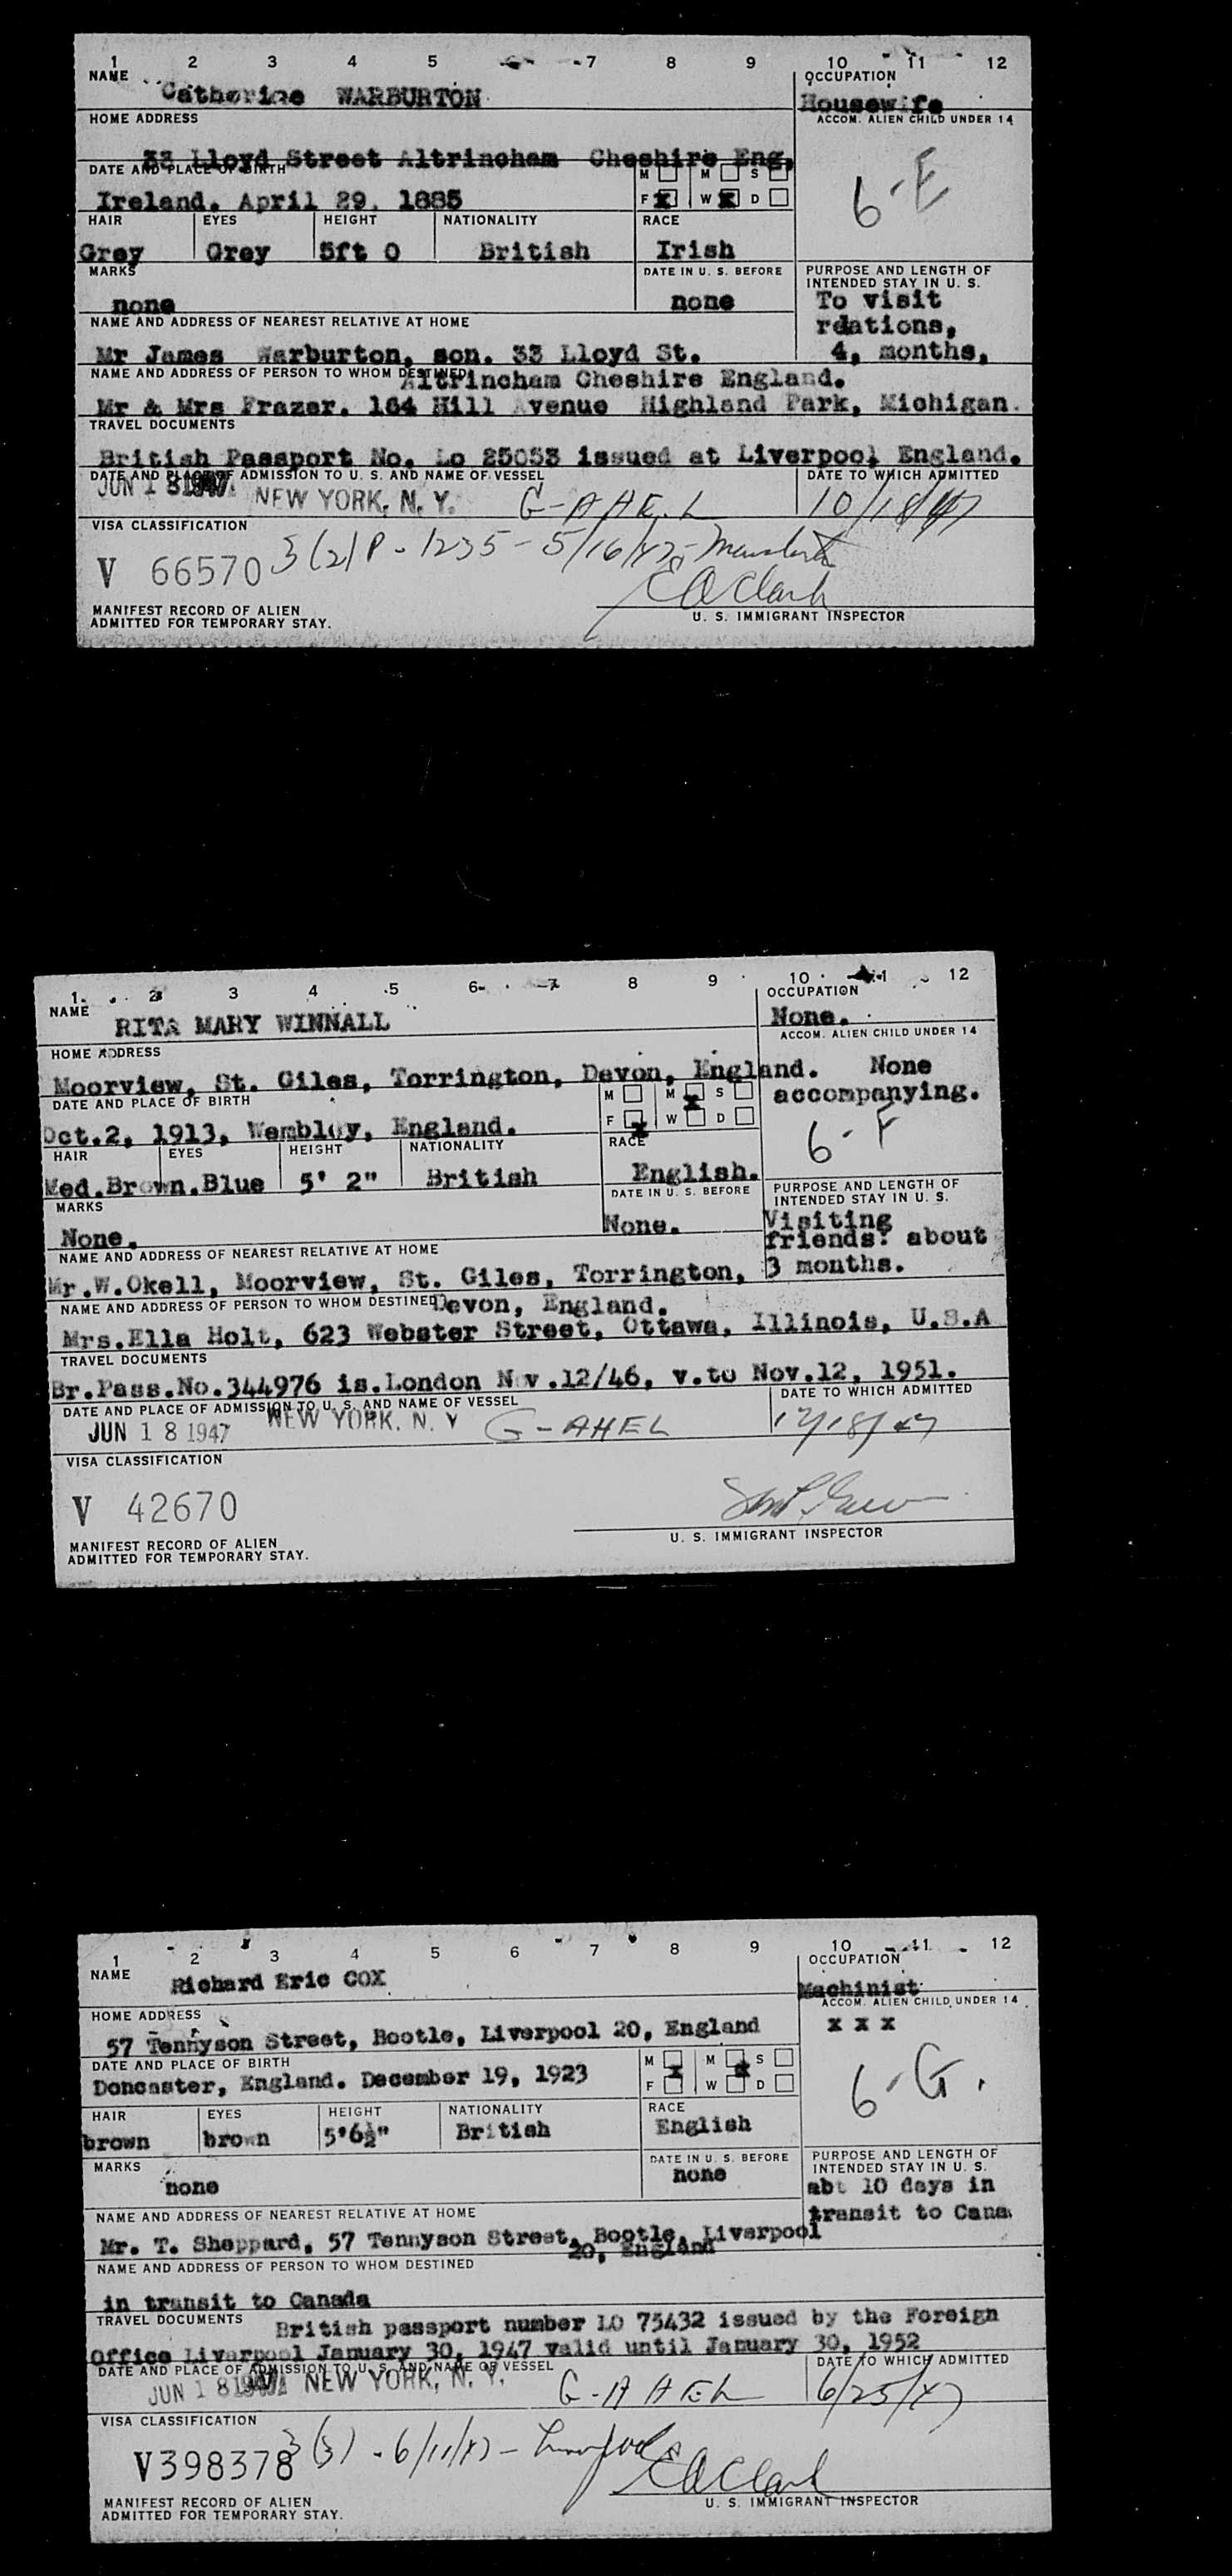 1 2 3 4 5 6 7 8 9 10 11 12
NAME OCCUPATION
Catherine WARBURTON Housewife
HOME ADDRESS ACCOM. ALIEN CHILD UNDER 14
33 Lloyd Street Altrincham Cheshire Eng,
DATE AND PLACE OF BIRTH M M S
Ireland, April 29, 1885 F X W X D 6-E
HAIR EYES HEIGHT NATIONALITY RACE
Grey Grey 5ft 0 British Irish
MARKS DATE IN U. S. BEFORE PURPOSE AND LENGTH OF
INTENDED STAY IN U. S.
none none To visit
NAME AND ADDRESS OF NEAREST RELATIVE AT HOME rdations,
Mr James Warburton, son. 33 Lloyd St. 4, months,
NAME AND ADDRESS OF PERSON TO WHOM DESTINED Altrincham Cheshire England.
Mr & Mrs Frazer. 164 Hill Avenue Highland Park, Michigan.
TRAVEL DOCUMENTS
British Passport No. Lo 25053 issued at Liverpool England.
DATE AND PLACE OF ADMISSION TO U. S. AND NAME OF VESSEL DATE TO WHICH ADMITTED
JUN 18 1947 NEW YORK, N. Y. G-AHEL 10/18/47
VISA CLASSIFICATION
V 66570 3(2) P-1235-5/16/47-
E A Clark
MANIFEST RECORD OF ALIEN U. S. IMMIGRANT INSPECTOR
ADMITTED FOR TEMPORARY STAY.
1 2 3 4 5 6 7 8 9 10 11 12
NAME OCCUPATION
RITA MARY WINNALL None.
HOME ADDRESS ACCOM. ALIEN CHILD UNDER 14
Moorview, St. Giles, Torrington, Devon, England. None
DATE AND PLACE OF BIRTH M M X S accompanying.
Oct.2, 1913, Wembley, England. F X W D 6-F
HAIR EYES HEIGHT NATIONALITY RACE
Med.Brown.Blue 5' 2" British English.
MARKS DATE IN U. S. BEFORE PURPOSE AND LENGTH OF
INTENDED STAY IN U. S.
None. None. Visiting
NAME AND ADDRESS OF NEAREST RELATIVE AT HOME friends: about
Mr.W.Okell, Moorview, St. Giles, Torrington, 3 months.
NAME AND ADDRESS OF PERSON TO WHOM DESTINED Devon, England.
Mrs.Ella Holt, 623 Webster Street, Ottawa, Illinois, U.S.A
TRAVEL DOCUMENTS
Br.Pass.No.344976 is.London Nov.12/46, v.to Nov.12, 1951.
DATE AND PLACE OF ADMISSION TO U. S. AND NAME OF VESSEL DATE TO WHICH ADMITTED
JUN 18 1947 NEW YORK, N. Y G-AHEL 12/18/47
VISA CLASSIFICATION
V 42670
MANIFEST RECORD OF ALIEN U. S. IMMIGRANT INSPECTOR
ADMITTED FOR TEMPORARY STAY.
1 2 3 4 5 6 7 8 9 10 11 12
NAME OCCUPATION
Richard Eric COX Machinist
HOME ADDRESS ACCOM. ALIEN CHILD UNDER 14
57 Tennyson Street, Bootle, Liverpool 20, England x x x
DATE AND PLACE OF BIRTH M X M X S
Doncaster, England. December 19, 1923 F W D 6-G.
HAIR EYES HEIGHT NATIONALITY RACE
brown brown 5'6½" British English
MARKS DATE IN U. S. BEFORE PURPOSE AND LENGTH OF
INTENDED STAY IN U. S.
none none abt 10 days in
NAME AND ADDRESS OF NEAREST RELATIVE AT HOME transit to Cana
Mr. T. Sheppard, 57 Tennyson Street, Bootle, Liverpool
20, England
NAME AND ADDRESS OF PERSON TO WHOM DESTINED
in transit to Canada
TRAVEL DOCUMENTS British passport number LO 75432 issued by the Foreign
Office Liverpool January 30, 1947 valid until January 30, 1952
DATE AND PLACE OF ADMISSION TO U. S. AND NAME OF VESSEL DATE TO WHICH ADMITTED
JUN 18 1947 NEW YORK, N. Y. G-AHEL 6/25/47
VISA CLASSIFICATION
V398378 3(3) - 6/11/47 - Liverpool
E A Clark
MANIFEST RECORD OF ALIEN U. S. IMMIGRANT INSPECTOR
ADMITTED FOR TEMPORARY STAY.